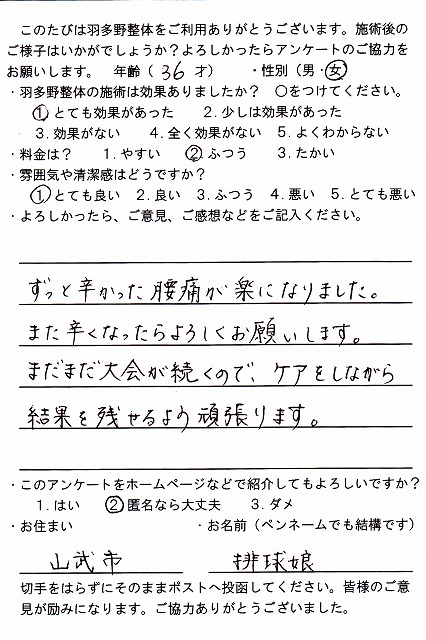 このたびは羽多野整体をご利用ありがとうございます。施術後の
ご様子はいかがでしょうか？よろしかったらアンケートのご協力を
お願いします。 年齢（ 36 才） ・性別（男・女）
・羽多野整体の施術は効果ありましたか？ ○をつけてください。
1. とても効果があった 2. 少しは効果があった
3. 効果がない 4. 全く効果がない 5. よくわからない
・料金は？ 1. やすい 2. ふつう 3. たかい
・雰囲気や清潔感はどうですか？
1. とても良い 2. 良い 3. ふつう 4. 悪い 5. とても悪い
・よろしかったら、ご意見、ご感想などをご記入ください。
ずっと辛かった腰痛が楽になりました。
また辛くなったらよろしくお願いします。
まだまだ大会が続くので、ケアをしながら
結果を残せるよう頑張ります。
・このアンケートをホームページなどで紹介してもよろしいですか？
1. はい 2. 匿名なら大丈夫 3. ダメ
・お住まい ・お名前（ペンネームでも結構です）
山武市 排球娘
切手をはらずにそのままポストへ投函してください。皆様のご意
見が励みになります。ご協力ありがとうございました。